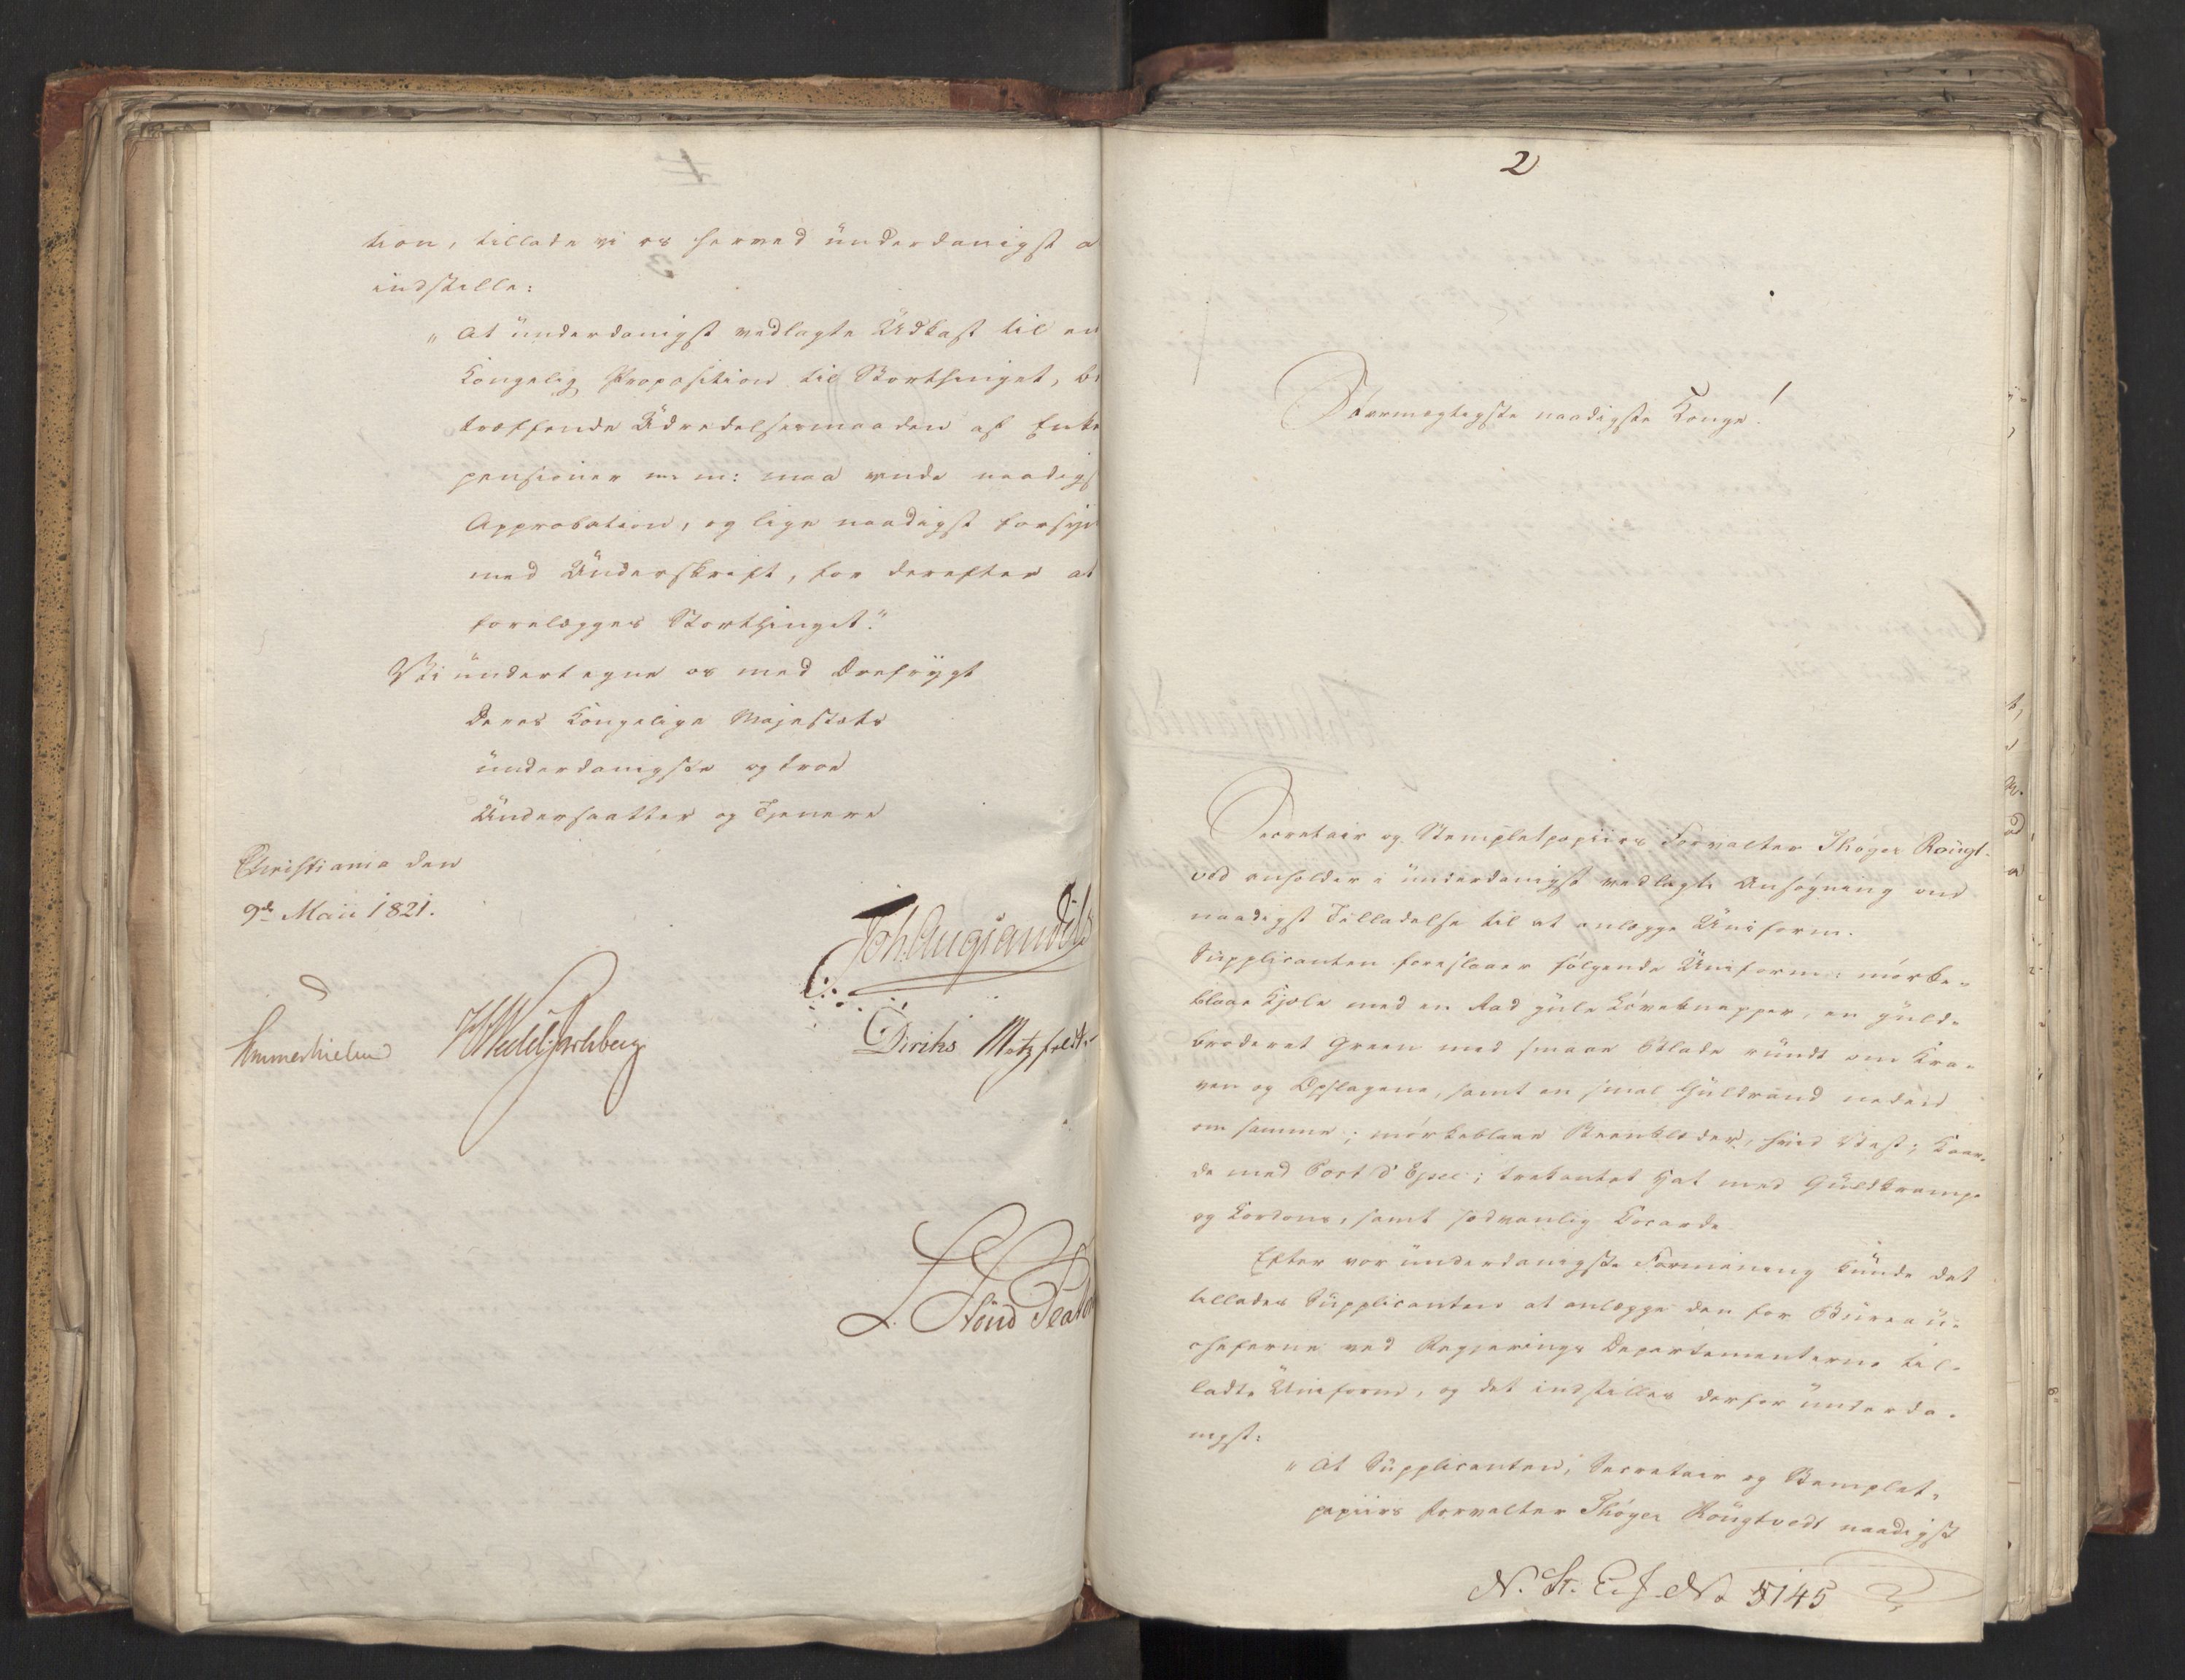 tion, tillade vi os herved underdanigst a
indstille:
„At underdanigst vedlagte Udkast til en
Kongelig Proposition til Storthinget, be
træffende Udredelsesmaaden af Enke
pensioner m. m: maa vinde naadigs
Approbation, og lige naadigst forsyn
med Underskrift, for derefter at
forelægges Storthinget."
Vi undertegne os med Ærefrygt
Deres Kongelige Majestæts
underdanigste og troe
Undersaatter og Tjenere
Christiania den
9de Maii 1821.
Joh. Aug: Sandels
Sommerhielm HWedelJarlsberg Diriks Motzfeldt
L. Stoud Platou
2
Stormægtigste naadigste Konge!
Secretair og Stempletpapiirs Forvalter Thøger Rougt-
ved anholder i underdanigst vedlagte Ansøgning om
naadigst Tilladelse til at anlægge Uniform.
Supplicanten foreslaaer følgende Uniform: mørke-
blaae Kjole med en Rad gule Løveknapper, en guld-
broderet Green med smaae Blade rundt om Kra-
ven og Opslagene, samt en smal Guldrand neden
om samme; mørkeblaae Beenklæder, hvid Vest; Kaar-
de med Port d'Epee; trekantet Hat med Guldkrampe
og Cordons, samt sædvanlig Cocarde.
Efter vor underdanigste Formening kunde det
tillades Supplicanten at anlægge den for Bureau-
cheferne ved Regjerings Departementerne til-
ladte Uniform, og det indstilles derfor underda-
nigst:
„At Supplicanten, Secretair og Stemplet-
papiirs forvalter Thøger Rougtvedt naadigst
N. St. E. J. No 5145